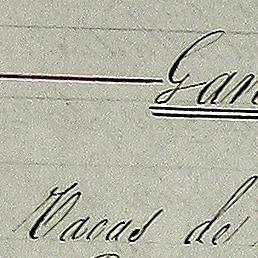 Gan
Vacas de